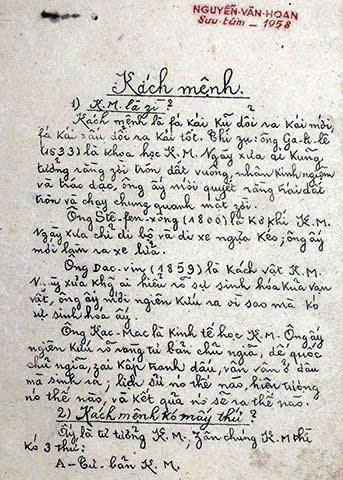 NGUYỄN-VĂN-HOAN
Sưu-tầm – 1958
Kách mệnh.
1) K.M. là gì?
Kách mệnh là fá kái kũ đổi ra kái mới,
fá kái xấu đổi ra kái tốt. Thí zụ: ông Ga-li-lê
(1633) là khoa học K.M. Ngày xưa ai kũng
tưởng rằng zời tròn đất vuông, nhân kinh ngiệm
và trắc đạc, ông ấy mới quyết rằng trái đất
tròn và chạy chung quanh mặt zời.
Ông Stê-fen-xông (1800) là kơ khí K.M.
Ngày xưa chỉ đi bộ và đi xe ngựa kéo; ông ấy
mới làm ra xe lửa.
Ông Đac-vin (1859) là kách vật K.M.
Ngày xưa không ai hiểu rõ sự sinh hóa của vạn
vật, ông ấy mới ngiên kứu ra vì sao mà kó
sự sinh hóa ấy.
Ông Kac-Mac là kinh tế học K.M. Ông ấy
ngiên kứu rõ ràng tư bản chủ ngĩa, đế quốc
chủ ngĩa, zai kấp tranh đấu, vân vân ở đâu
mà sinh ra; lịch sử nó thế nào, hiện tượng
nó thế nào, và kết quả nó sẽ ra thế nào.
2) Kách mệnh kó mấy thứ?
Ấy là tư tưởng K.M, zân chúng K.M thì
kó 3 thứ:
A– Tư-bản K.M.